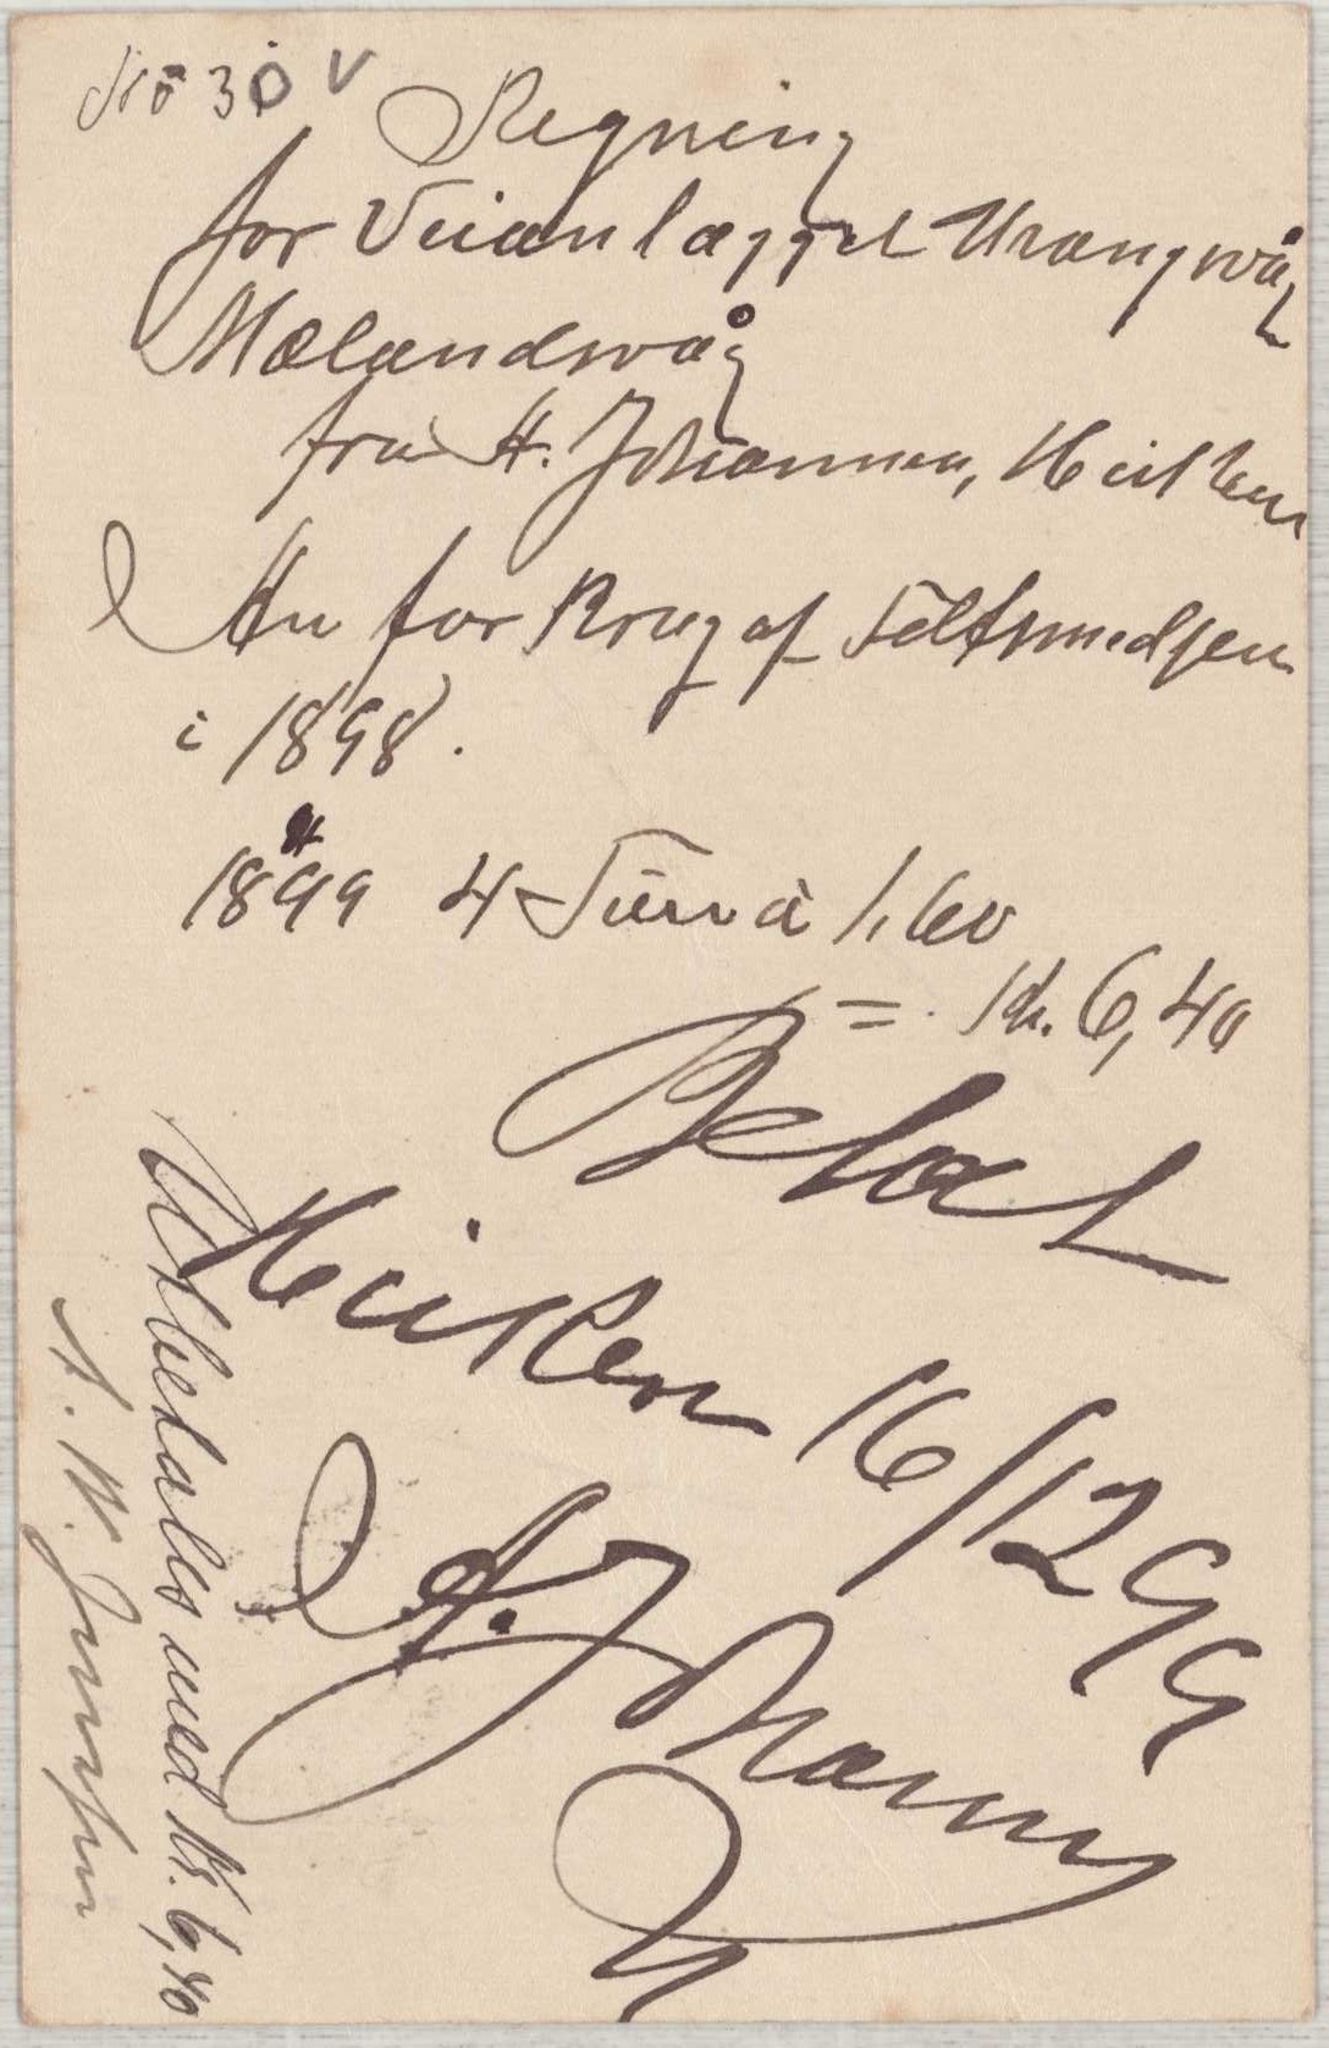 No 30 V
Regning
for Veianlægget Urangvåg
Mælandsvåg
fra H. Johannesen, Heiken
An for Brug af Feltsmedjen
i 1898.
1899 4 Turer à 1,60
= Kr. 6,40
Betalt
Heiken 16/12 99
H. Johannesen
Udbetales med Kr. 6,40